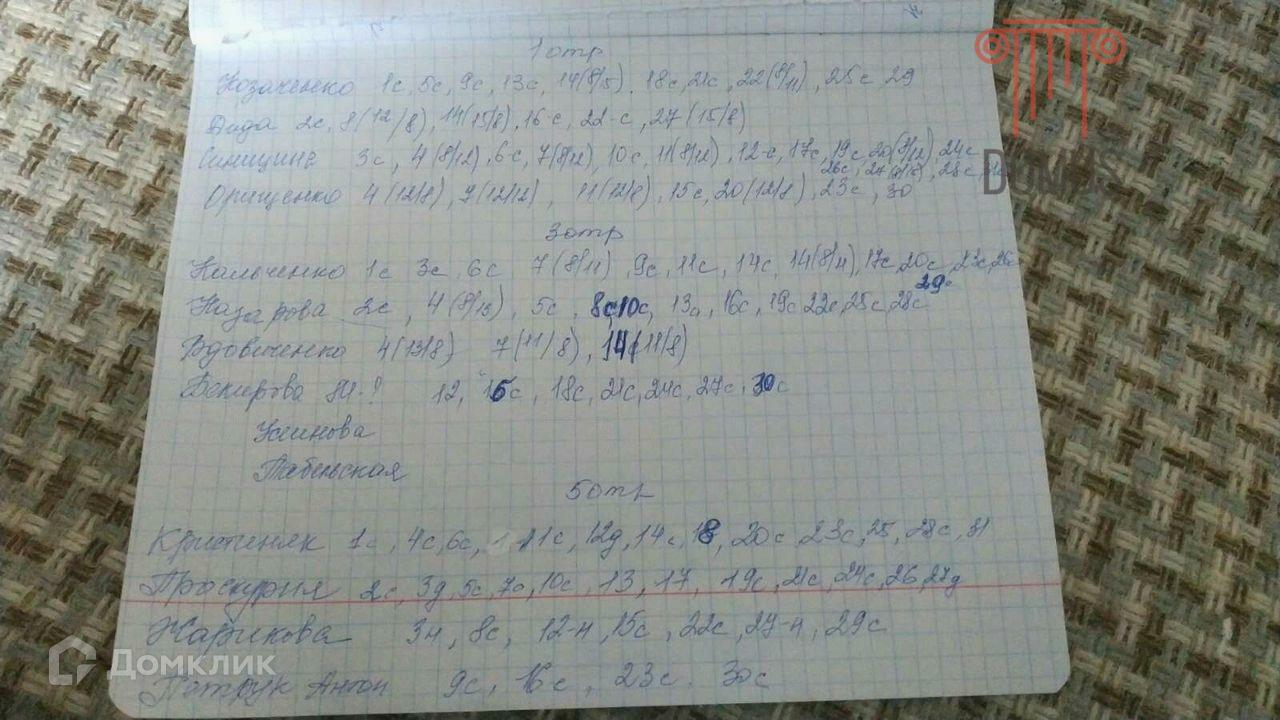 1 отр
Козаченко 1с, 5с, 9с, 13с, 14(8/15), 18с, 21с, 22(8/11), 25с, 29
Дида 2с, 8(12/8), 14(15/8), 16-с, 22-с, 27(15/8)
Синицина 3с, 4(8/12), 6-с, 7(8/12), 10с, 11(8/12), 12-с, 17с, 19с, 20(8/12), 24с
26с, 27(8/15), 28с,
Орищенко 4(12/8), 7(12/12), 11(12/8), 15с, 20(12/8), 23с, 30
3 отр
Кальченко 1с 3с, 6с 7(8/11), 9с, 11с, 14с, 14(8/11), 17с, 20с, 23с, 26с
29с
Назарова 2с, 4(8/13), 5с, 8с, 10с, 13с, 16с, 19с 22с, 25с, 28с
Вдовиченко 4(13/8) 7(11/8), 14(11/8)
Бекирова 8Н-? 12, 15с, 18с, 21с, 24с, 27с, 30с
Усинова
Табенская
5 отр
Кристиняк 1с, 4с, 6с, 11с, 12д, 14с, 18, 20с 23с, 25, 28с, 31
Проскурня 2с, 3д, 5с, 7с, 10с, 13, 17, 19с, 21с, 24с, 26, 27д
Жарикова 3н, 8с, 12-н, 15с, 22с, 27-н, 29с
Патрук Антон 9с, 16с, 23с, 30с
DOMUS
Домклик